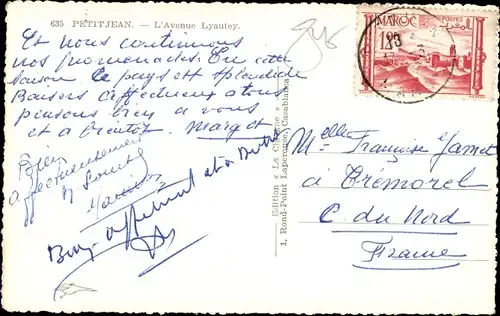 635 PETITJEAN. — L'Avenue Lyautey.
Et nous continuons
nos promenades. En cette
saison le pays est splendide
Baisers affectueux a tous
pensons bien a vous
et a bientot. Margot
Bien
affectueusement
Bien affectueusement et à Bientôt
Edition « La Cigogne »
1, Rond-Point Lapeyrouse, Casablanca
MAROC
POSTES
Melle Françoise Jamet
à Trémorel
C. du Nord
France